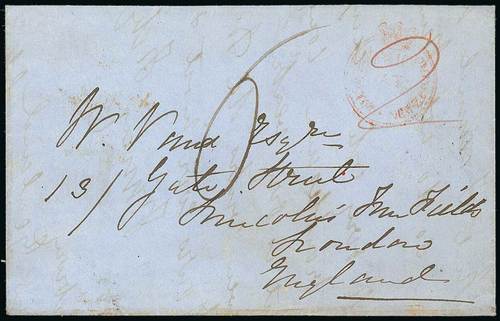 W. Vand Esqre
13/ Gate Street
Lincoln's Inn Fields
London
England
6
2